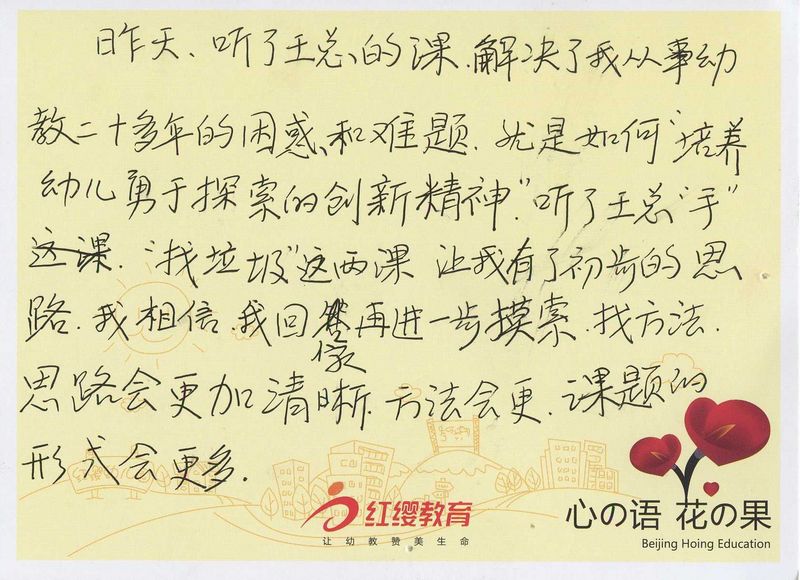 昨天、听了王总的课、解决了我从事幼
教二十多年的困惑、和难题、就是如何“培养
幼儿勇于探索的创新精神”。听了王总“手”
这课.“找垃圾”这两课 让我有了初步的思
路.我相信.我回家再进一步摸索.找方法.
思路会更加清晰.方法会更.课题的
形式会更多.
红缨教育
让幼教赞美生命
心の语 花の果
Beijing Hoing Education